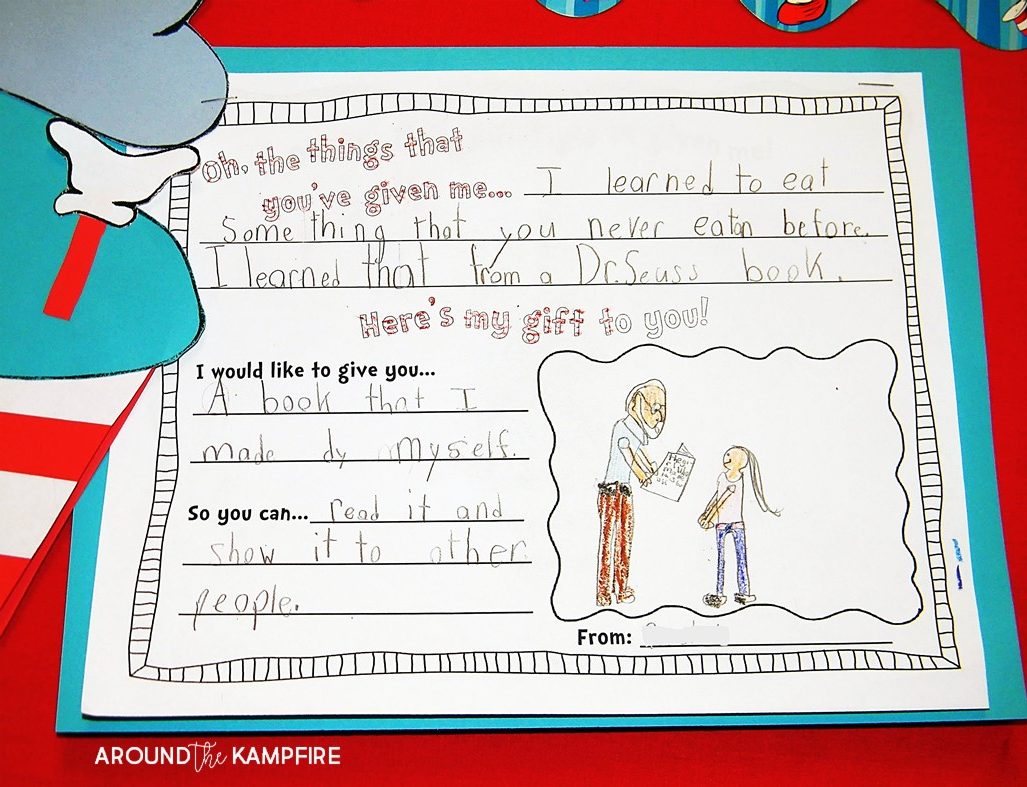 Oh, the things that
you've given me... I learned to eat
Something that you never eaten before.
I learned that from a Dr. Seuss book.
Here's my gift to you!
I would like to give you...
A book that I
made dy myself.
So you can... read it and
show it to other
people.
From:
AROUND the KAMPFIRE